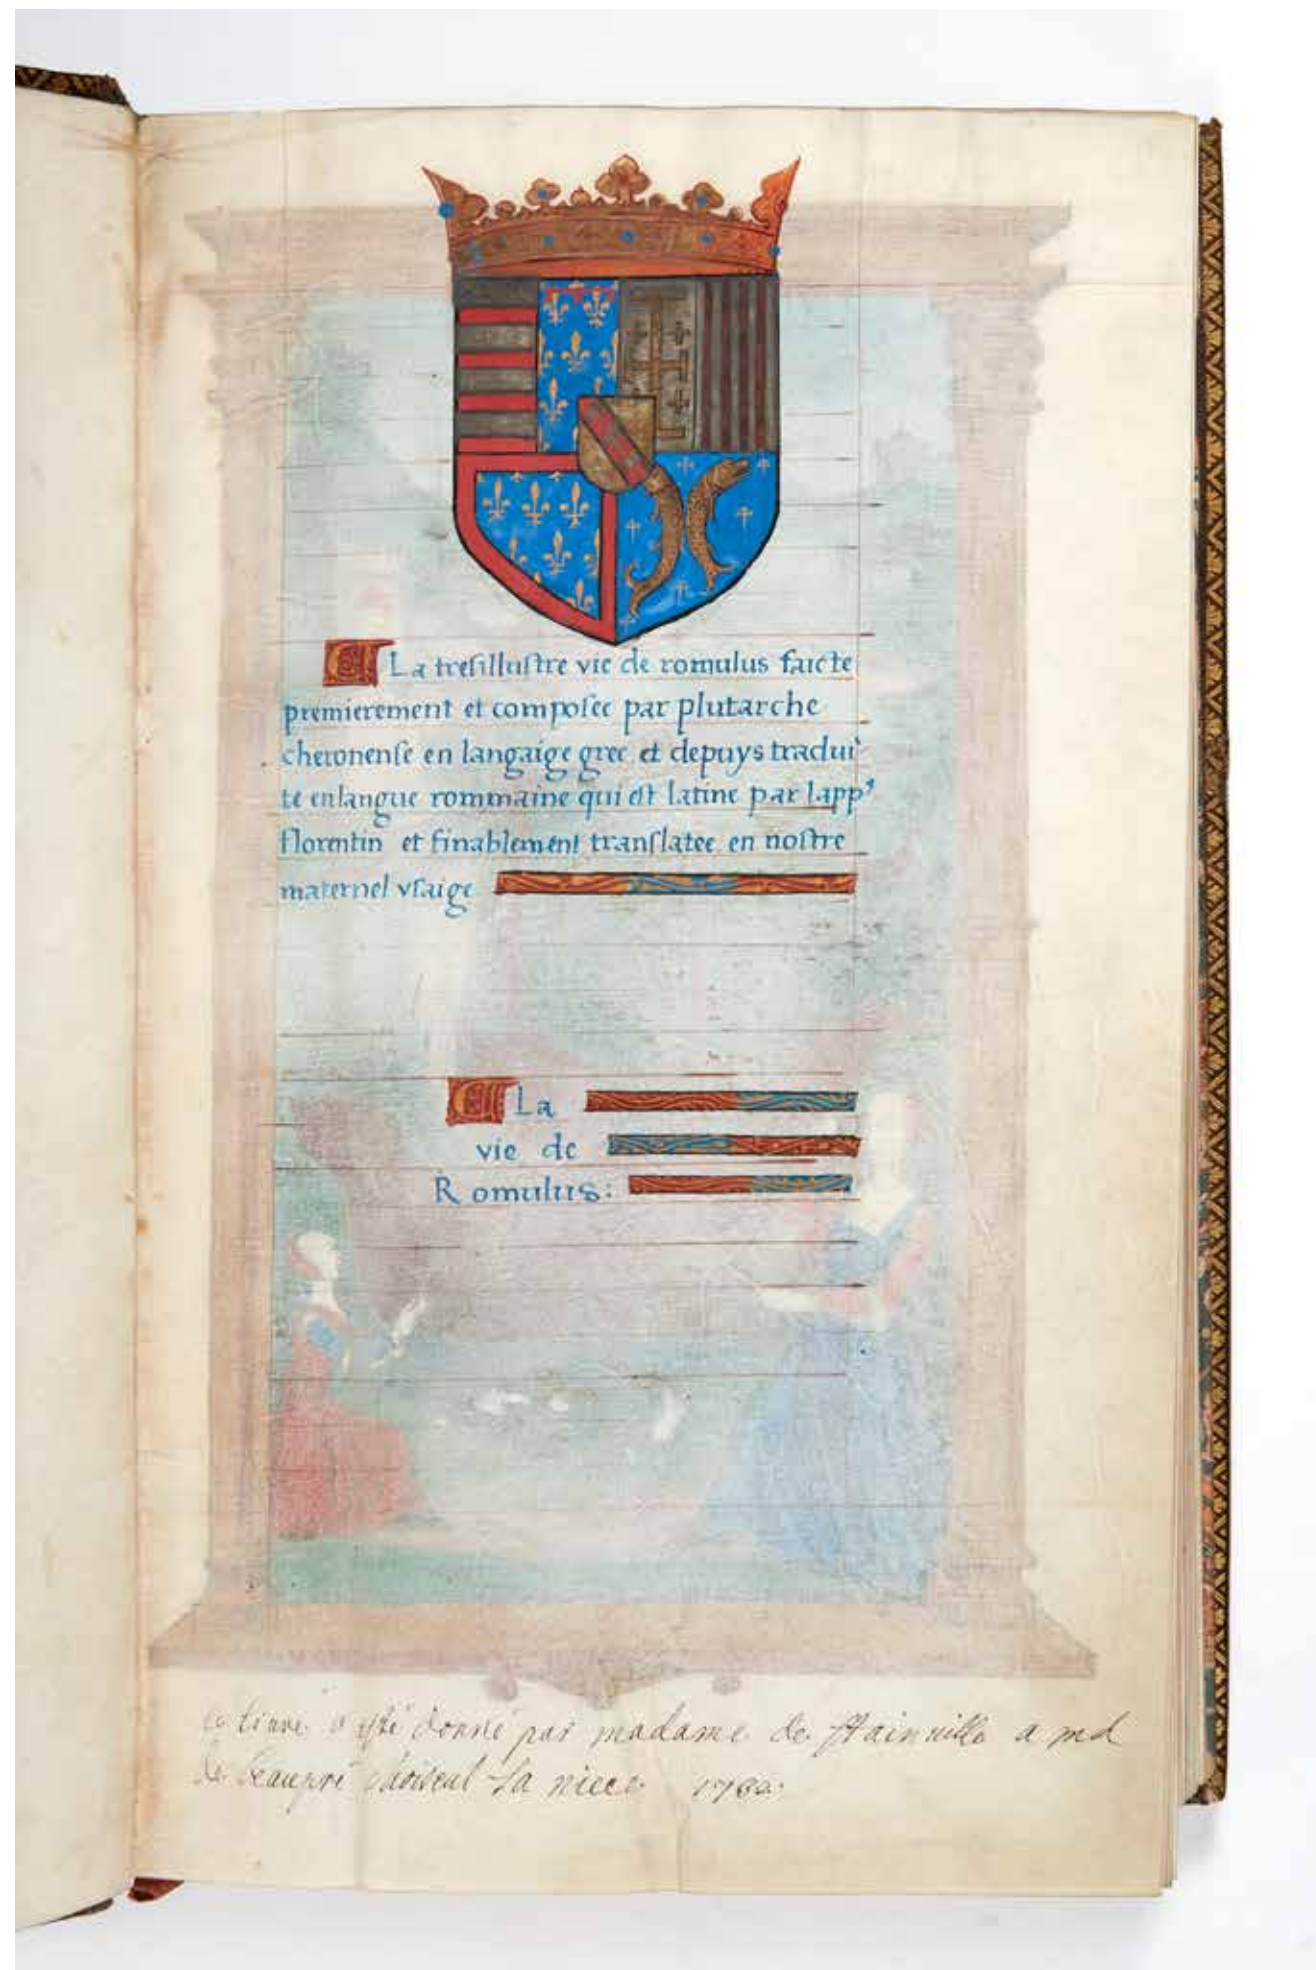 La tresillustre vie de romulus faicte
premierement et composee par plutarche
cheronense en langaige grec et depuys tradui
te en langue rommaine qui est latine par lapp⁹
florentin et finablement translatee en nostre
maternel usaige
La
vie de
Romulus:
ce livre a esté donné par madame de Stainville a md
de beaupré choiseul sa niece